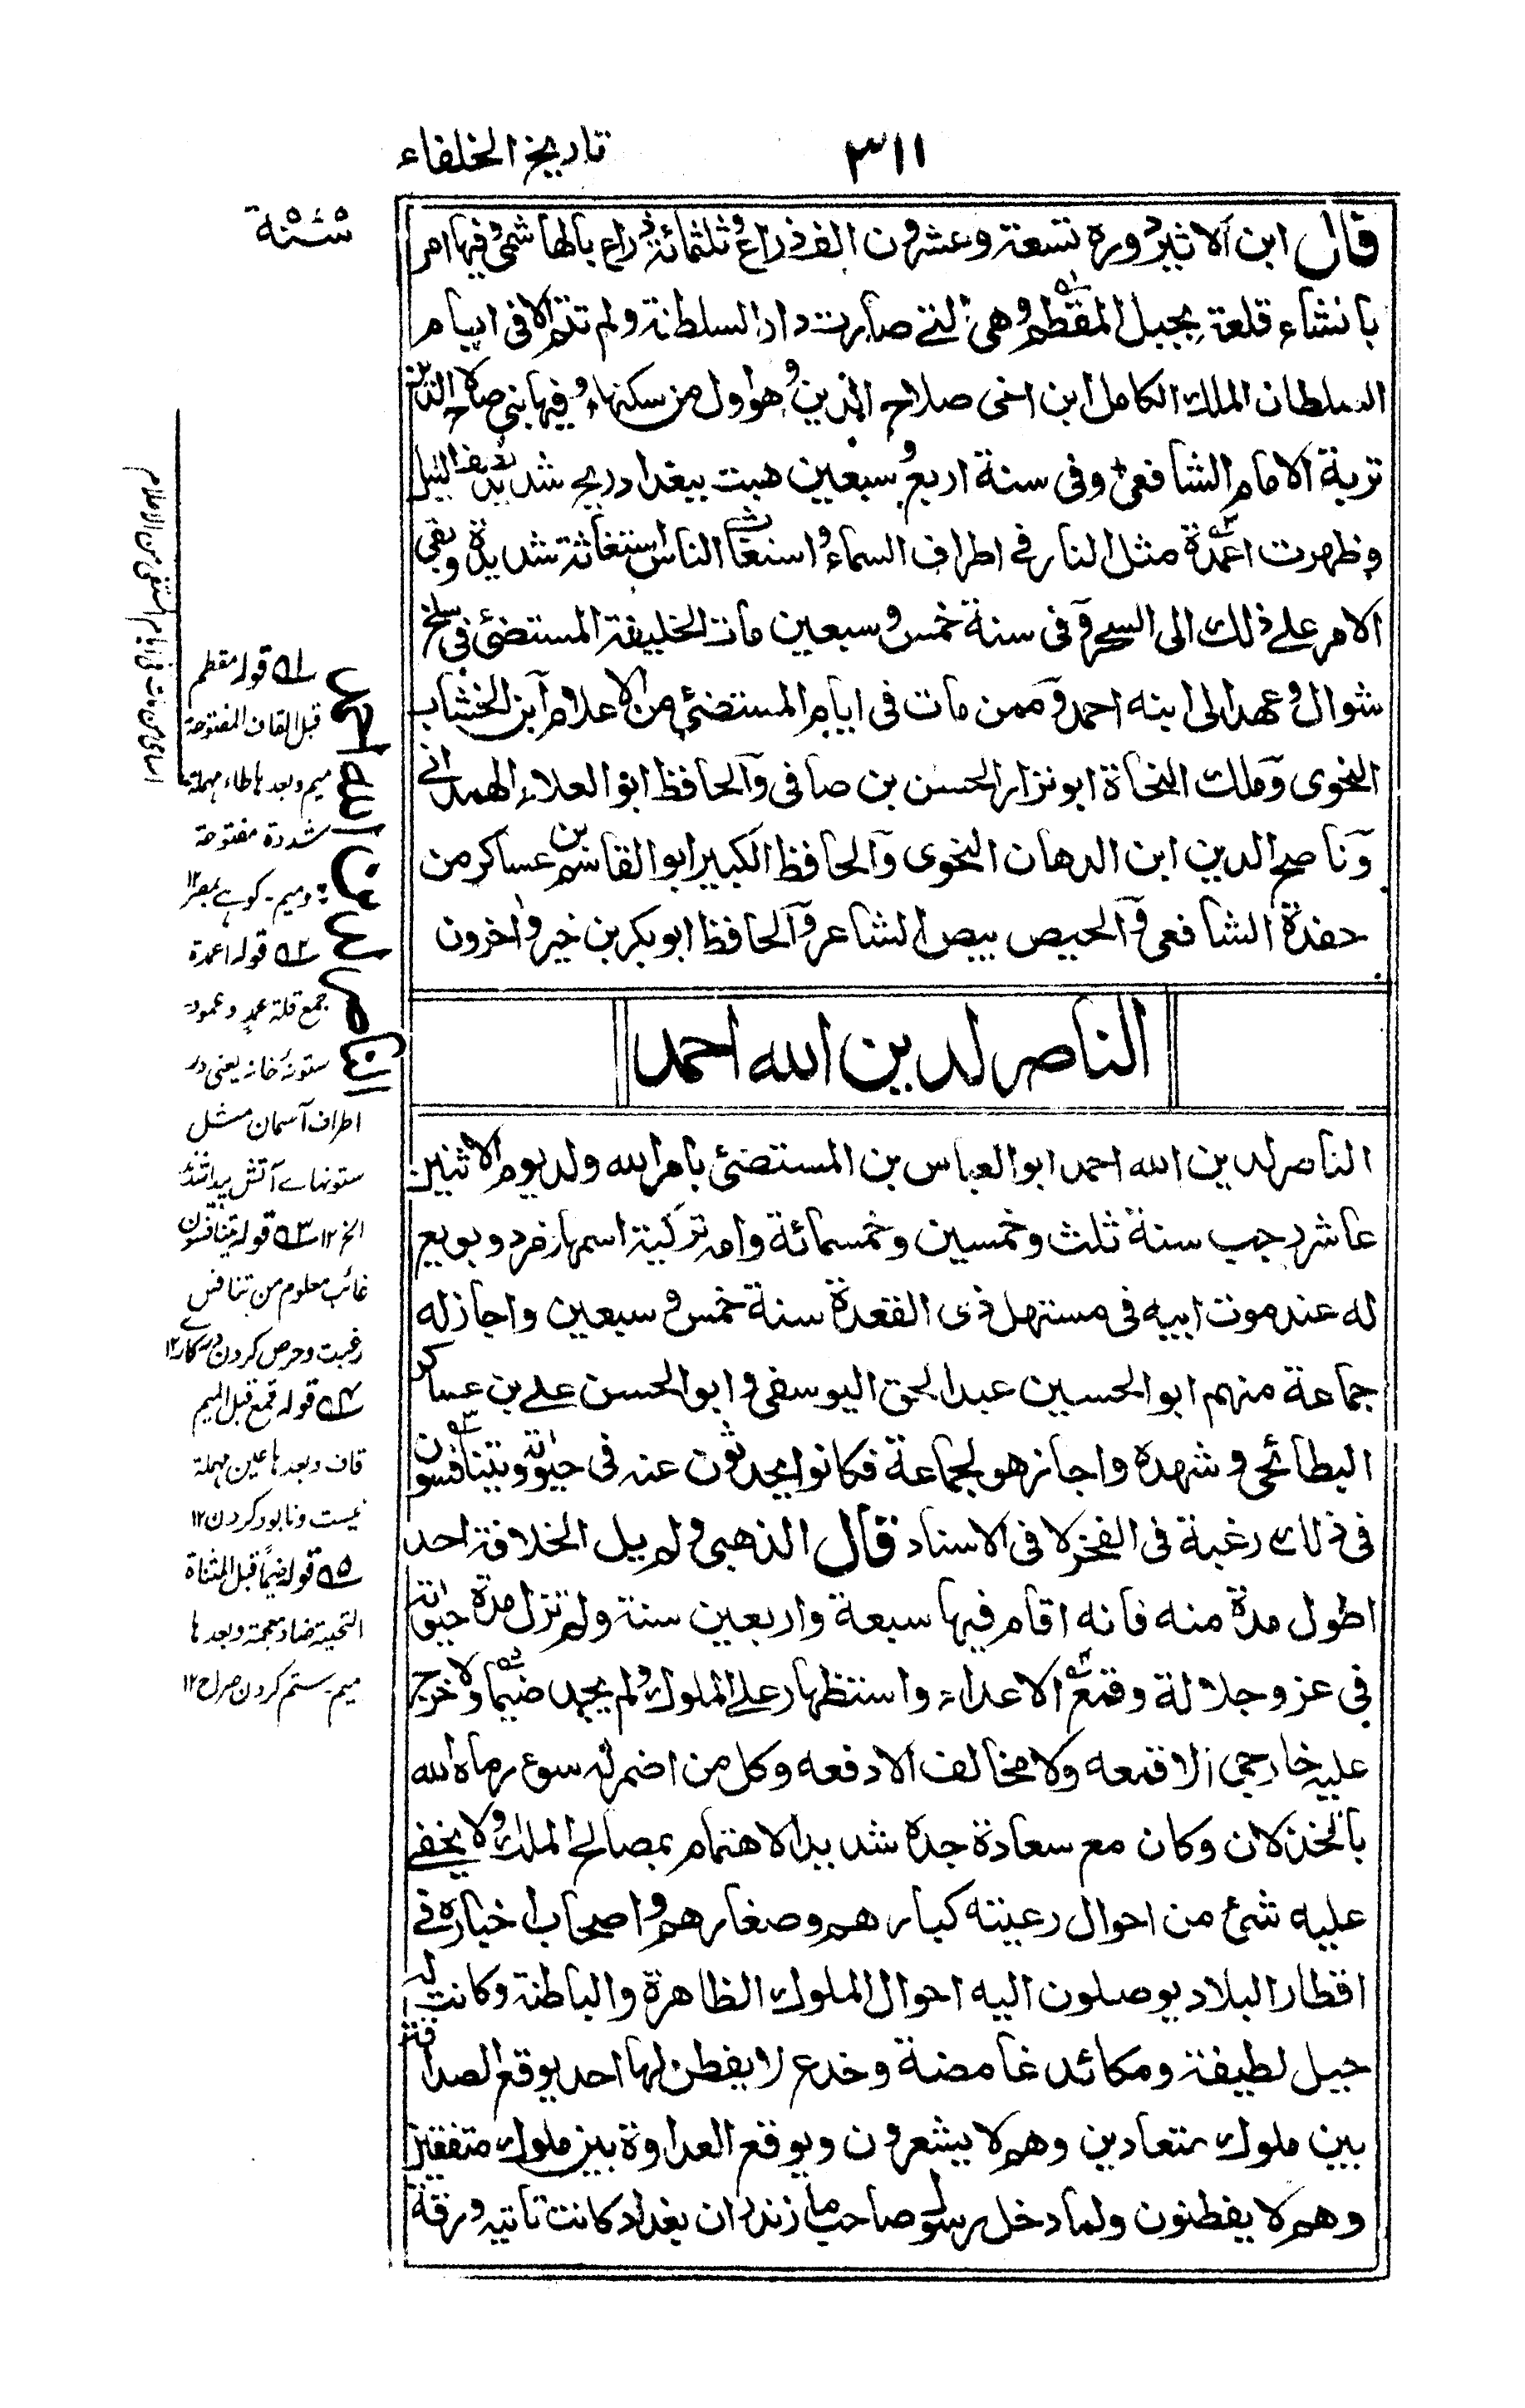 ٣١١
تاريخ الخلفاء
قال ابن الاثير ودوره تسعة وعشرون الف ذراع وثلثمائة ذراع بالهاشمى وفيها امر
بانشاء قلعة بجبل المقطم وهى التے صارت دار السلطنة ولم تتم الا فى ايام
السلطان الملك الكامل ابن اخى صلاح الدين وهو اول من سكنها وفيها بنى صلاح الدين
تربة الامام الشافعى وفى سنة اربع وسبعين هبت ببغداد ريح شديدة نصف الليل
وظهرت اعمدة مثل النار فے اطراف السماء واستغاث الناس استغاثة شديدة وبقى
الامر علے ذلك الى السحر وفى سنة خمس وسبعين مات الخليفة المستضئ فى سلخ
شوال وعهد الى ابنه احمد وممن مات فى ايام المستضئ من الاعلام ابن الخشاب
النحوى وملك النحاة ابو نزار الحسن بن صافى والحافظ ابو العلاء الهمدانے
وناصح الدين ابن الدهان النحوى والحافظ الكبير ابو القاسم بن عساكر من
حفدة الشافعى والحيص بيص الشاعر والحافظ ابو بكر بن خير واخرون
الناصر لدين الله احمد
الناصر لدين الله احمد ابو العباس بن المستضئ بامر الله ولد يوم الاثنين
عاشر رجب سنة ثلث وخمسين وخمسمائة وامه تركية اسمها زمرد وبويع
له عند موت ابيه فى مستهل ذى القعدة سنة خمس و سبعين واجاز له
جماعة منهم ابو الحسين عبد الحق اليوسفى وابو الحسن علے بن عساكر
البطائحى وشهدة واجاز هو لجماعة فكانوا يحدثون عنه فى حيوته ويتنافسون
فى ذلك رغبة فى الفخر لا فى الاسناد قال الذهبى ولم يل الخلافة احد
اطول مدة منه فانه اقام فيها سبعة واربعين سنة ولم تزل مدة حيوته
فى عز وجلالة وقمع الاعداء واستظهار علے الملوك ولم يجد ضيما ولا خرج
عليه خارجى الا قمعه ولا مخالف الا دفعه وكل من اضمر له سوء رماه الله
بالخذلان وكان مع سعادة جده شديد الاهتمام بمصالح الملك ولا يخفے
عليه شئ من احوال رعيته كبارهم وصغارهم واصحاب اخباره فے
اقطار البلاد يوصلون اليه احوال الملوك الظاهرة والباطنة وكانت له
حيل لطيفة ومكائد غامضة وخدع لا يفطن لها احد يوقع الصداقة
بين ملوك متعادين وهم لا يشعرون ويوقع العداوة بين ملوك متفقين
وهم لا يفطنون ولما دخل رسول صاحب مازندران بغداد كانت تاتيه ورقة
لہ قوله مقطم
قبل القاف المفتوحة
ميم وبعدها طاء مهملة
مشددة مفتوحة
وميم - كوہے بمصر ١٢
٢ قوله اعمدة
جمع قلة عمد و عمود
ستونہ خانہ يعنى در
اطراف آسمان مثل
ستونہاے آتش پيدا شدند
الخ ١٢ ٣ قوله يتنافسون
غائب معلوم من تنافس
رغبت وحرص كردن در كارے ١٢
٤ قوله قمع قبل الميم
قاف وبعدها عين مهملة
نيست ونابود كردن ١٢
٥ قوله ضيما قبل المثناة
التحتية ضاد معجمة وبعدها
ميم - ستم كردن صراح ١٢